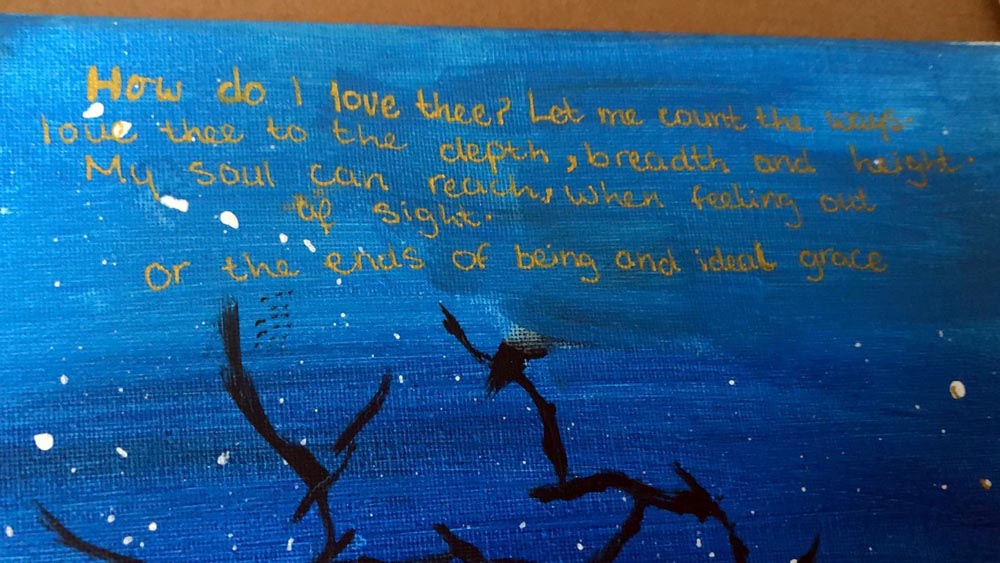 How do I love thee? Let me count the ways.
love thee to the depth, breadth and height.
My soul can reach, when feeling out
of sight.
or the ends of being and ideal grace